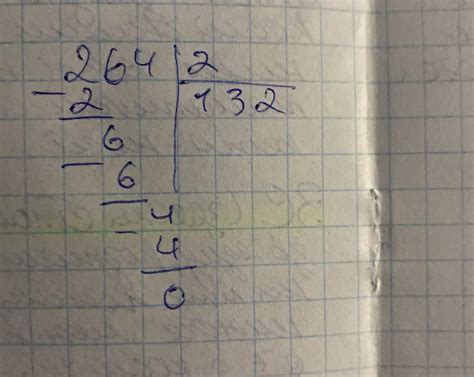 264 | 2
- 2 | 132
6
- 6
4
- 4
0